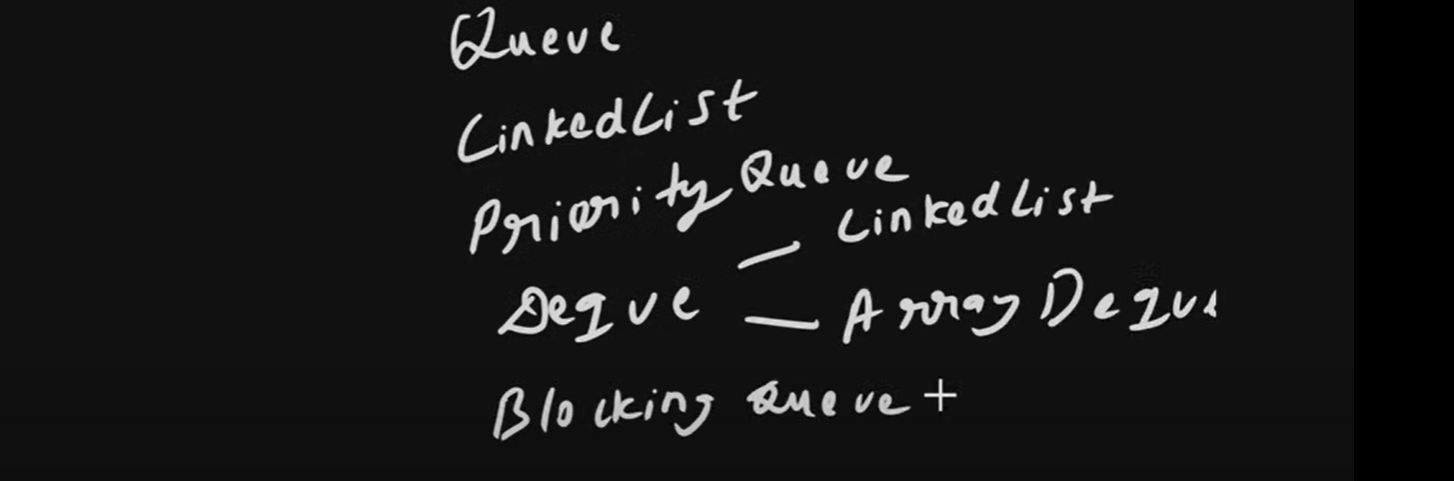 Queue
LinkedList
PriorityQueue
LinkedList
Deque
ArrayDeque
Blocking Queue +